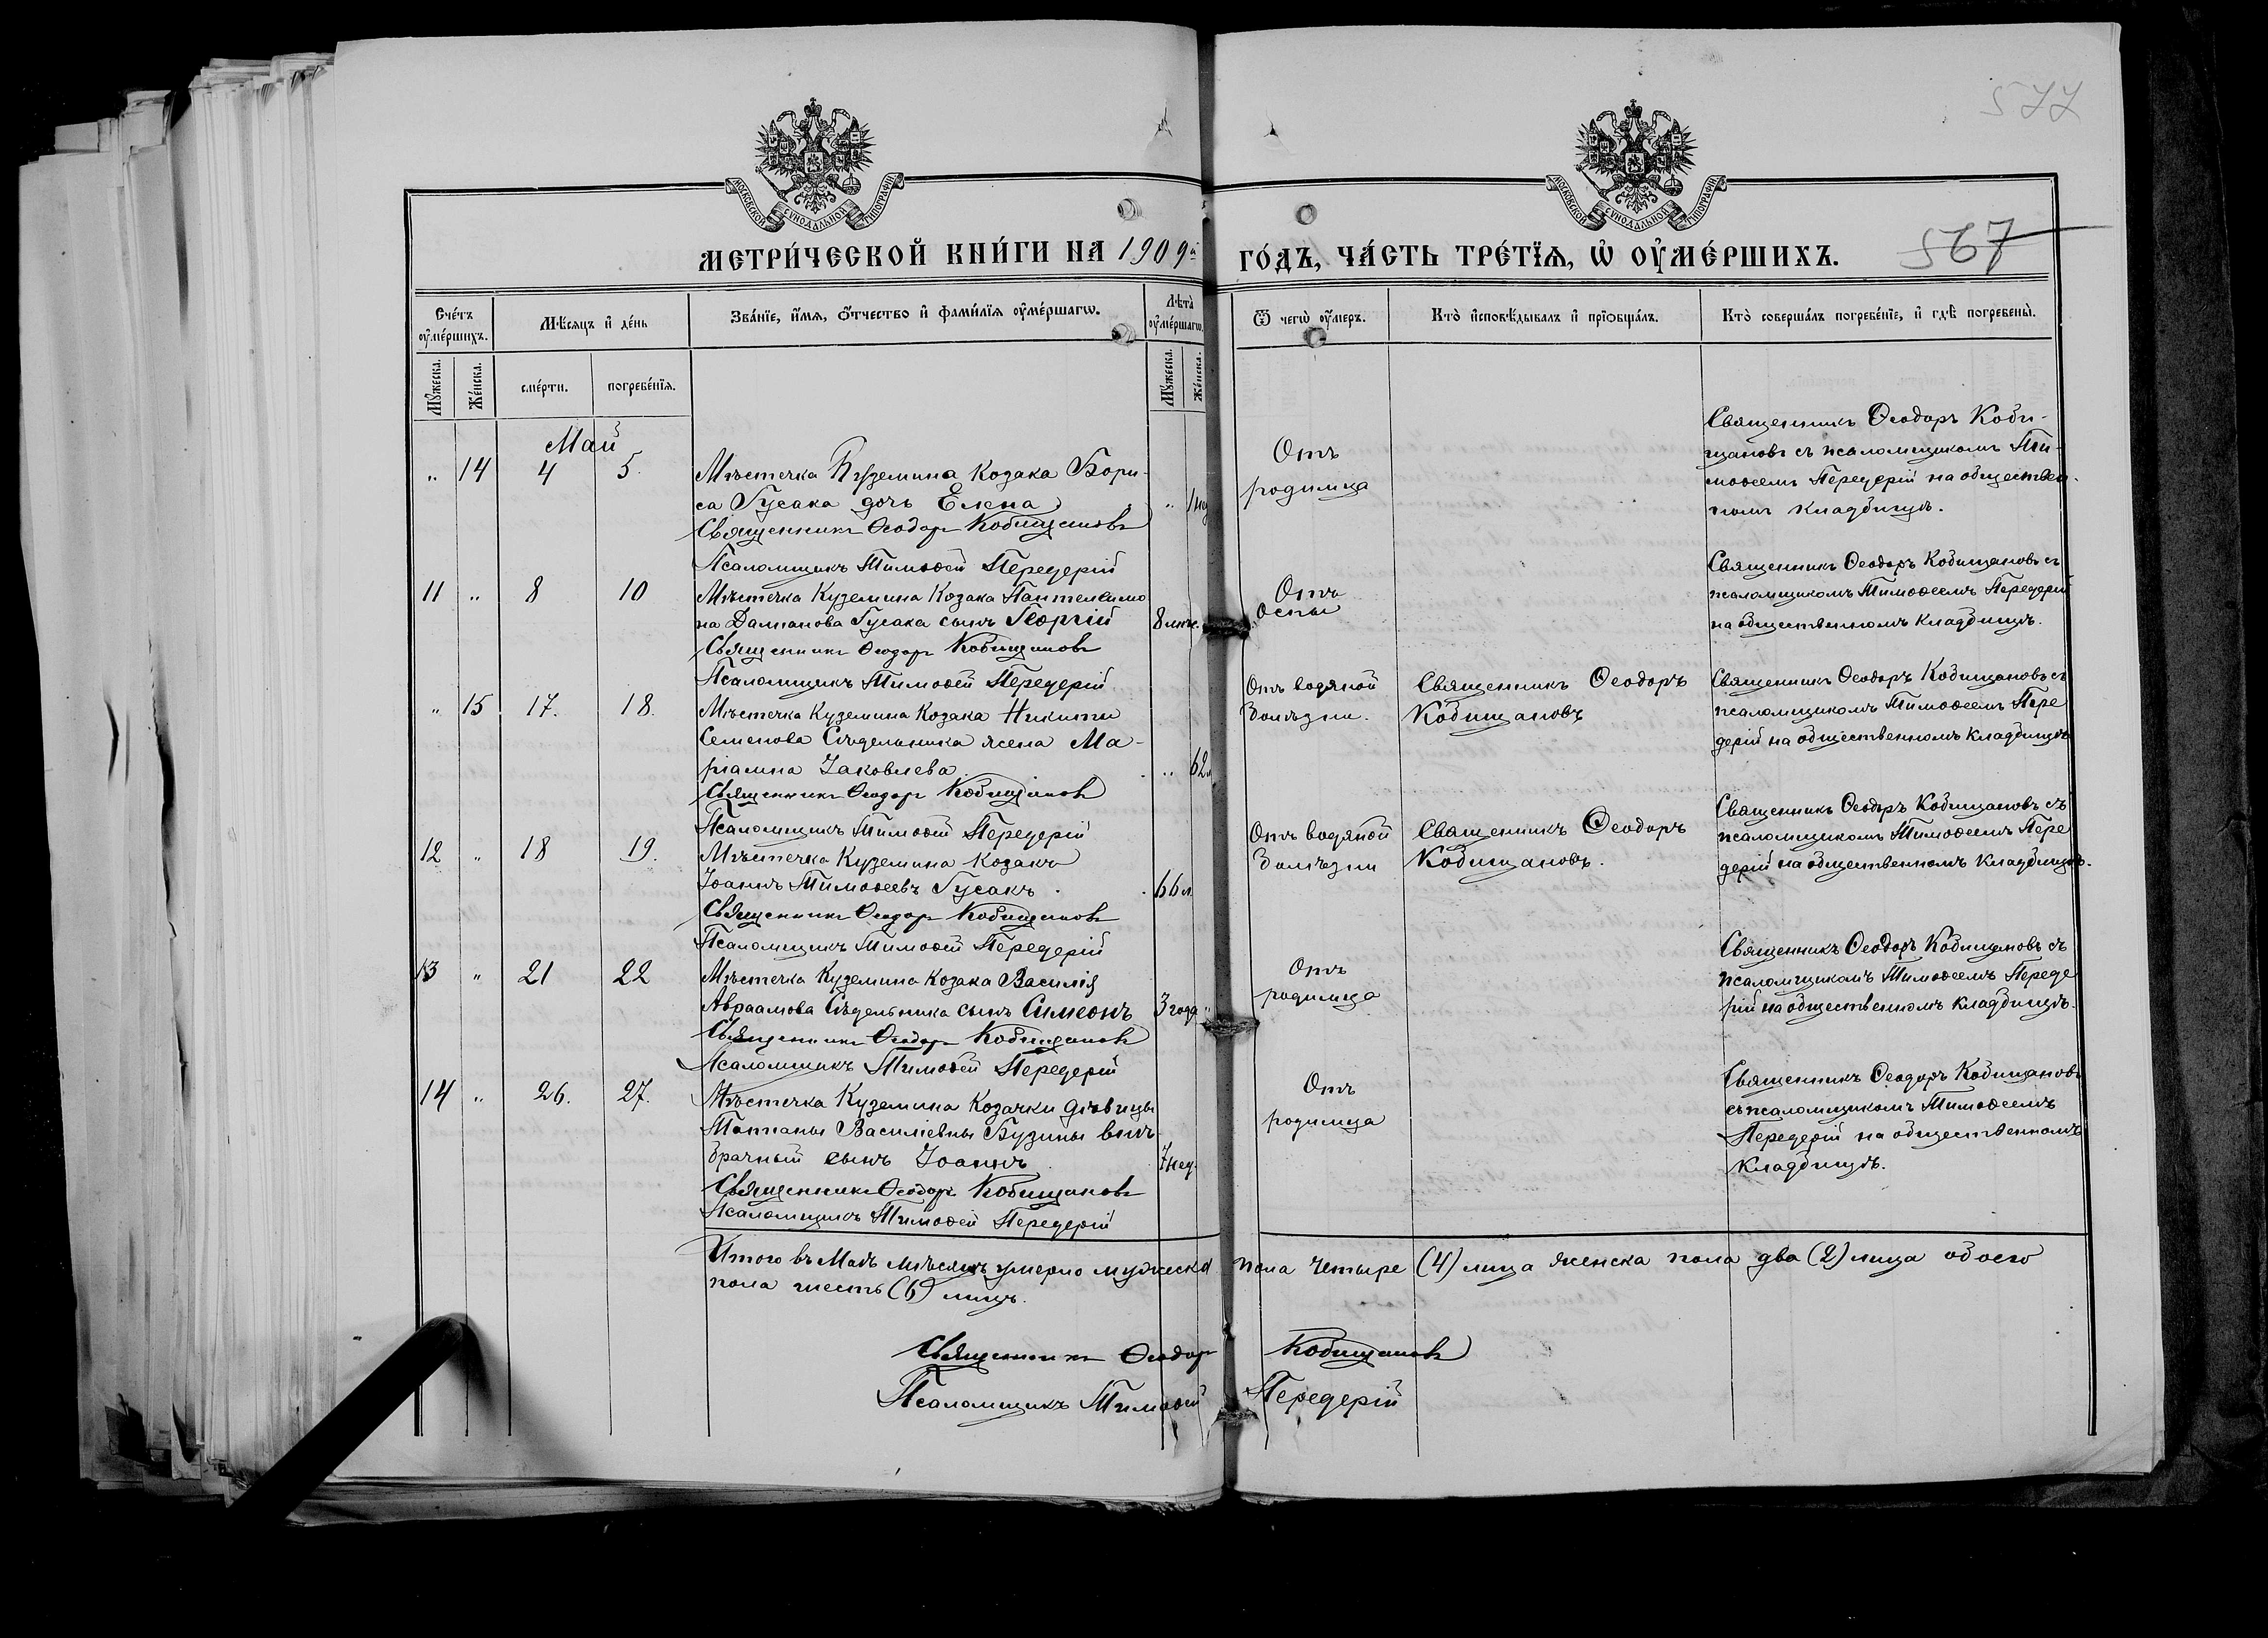 577
МОСКОВСКОЙ СѴНОДАЛЬНОЙ ТИПОГРАФІИ
МОСКОВСКОЙ СѴНОДАЛЬНОЙ ТИПОГРАФІИ
МЕТРИ́ЧЕСКОЙ КНИ́ГИ НА 1909й ГО́ДЪ, ЧА́СТЬ ТРЕ́ТІѦ, Ѽ ОУ҆МЕ́РШИХЪ. 567
Сче́тъ оу҆ме́ршихъ.
Мѣ́сяцъ и҆ де́нь
Зва́нїе, и҆́мѧ, ѻ҆́тчество и҆ фами́лїѧ оу҆ме́ршагѡ.
Лѣта̀ оу҆ме́ршагѡ.
Ѿ чегѡ̀ оу҆́меръ.
Кто̀ и҆сповѣ́дывалъ и҆ прїѡбща́лъ.
Кто̀ соверша́лъ погребе́нїе, и҆ гдѣ̀ погребены̀.
Мꙋ́жеска.
Же́нска.
сме́рти.
погребе́нїѧ.
Мꙋ́жеска.
Же́нска.
Май
„ 14 4 5.
Мѣстечка Куземина Козака Бори-
са Гусака дочь Елена „ 1 нед
Священникъ Ѳеодоръ Кобищановъ
Псаломщикъ Тимоѳей Передерій
Отъ
родимца
Священникъ Ѳеодоръ Коби-
щановъ съ псаломщикомъ Ти-
моѳеемъ Передерій на обществен-
номъ кладбищѣ.
11 „ 8 10
Мѣстечка Куземина Козака Пантелеимо
на Дамianова Гусака сынъ Георгій 8 мѣс.
Священникъ Ѳеодоръ Кобищановъ
Псаломщикъ Тимоѳей Передерій
Отъ
оспы
Священникъ Ѳеодоръ Кобищановъ съ
псаломщикомъ Тимоѳеемъ Передерій
на общественномъ кладбищѣ.
„ 15 17. 18.
Мѣстечка Куземина Козака Никиты
Семенова Съдельника жена Ма-
ріамна Іаковлева „ 62 л
Священникъ Ѳеодоръ Кобищановъ
Псаломщикъ Тимоѳей Передерій
Отъ водяной
болѣзни.
Священникъ Ѳеодоръ
Кобищановъ
Священникъ Ѳеодоръ Кобищановъ съ
псаломщикомъ Тимоѳеемъ Пере
дерій на общественномъ кладбищѣ
12 „ 18 19.
Мѣстечка Куземина козакъ
Іоаннъ Тимоѳеевъ Гусакъ. 66 л
Священникъ Ѳеодоръ Кобищановъ
Псаломщикъ Тимоѳей Передерій
Отъ водяной
болѣзни
Священникъ Ѳеодоръ
Кобищановъ.
Священникъ Ѳеодоръ Кобищановъ съ
псаломщикомъ Тимоѳеемъ Пере
дерій на общественномъ кладбищѣ.
13 „ 21 22
Мѣстечка Куземина Козака Василія
Авраамова Съдельника сынъ Симеонъ 3 года „
Священникъ Ѳеодоръ Кобищановъ
Псаломщикъ Тимоѳей Передерій
Отъ
родимца
Священникъ Ѳеодоръ Кобищановъ съ
псаломщикомъ Тимоѳеемъ Переде
рій на общественномъ кладбищѣ.
14 „ 26. 27.
Мѣстечка Куземина Козачки дѣвицы
Татіаны Василіевны Бузины внѣ-
брачный сынъ Іоаннъ 7 нед.
Священникъ Ѳеодоръ Кобищановъ
Псаломщикъ Тимоѳей Передерій
Отъ
родимца
Священникъ Ѳеодоръ Кобищановъ
съ псаломщикомъ Тимоѳеемъ
Передерій на общественномъ
кладбищѣ.
Итого въ Маѣ мѣсяцѣ умерло мужеска пола четыре (4) лица женска пола два (2) лица обоего
пола шесть (6) лицъ.
Священникъ Ѳеодоръ Кобищановъ
Псаломщикъ Тимоѳей Передерій